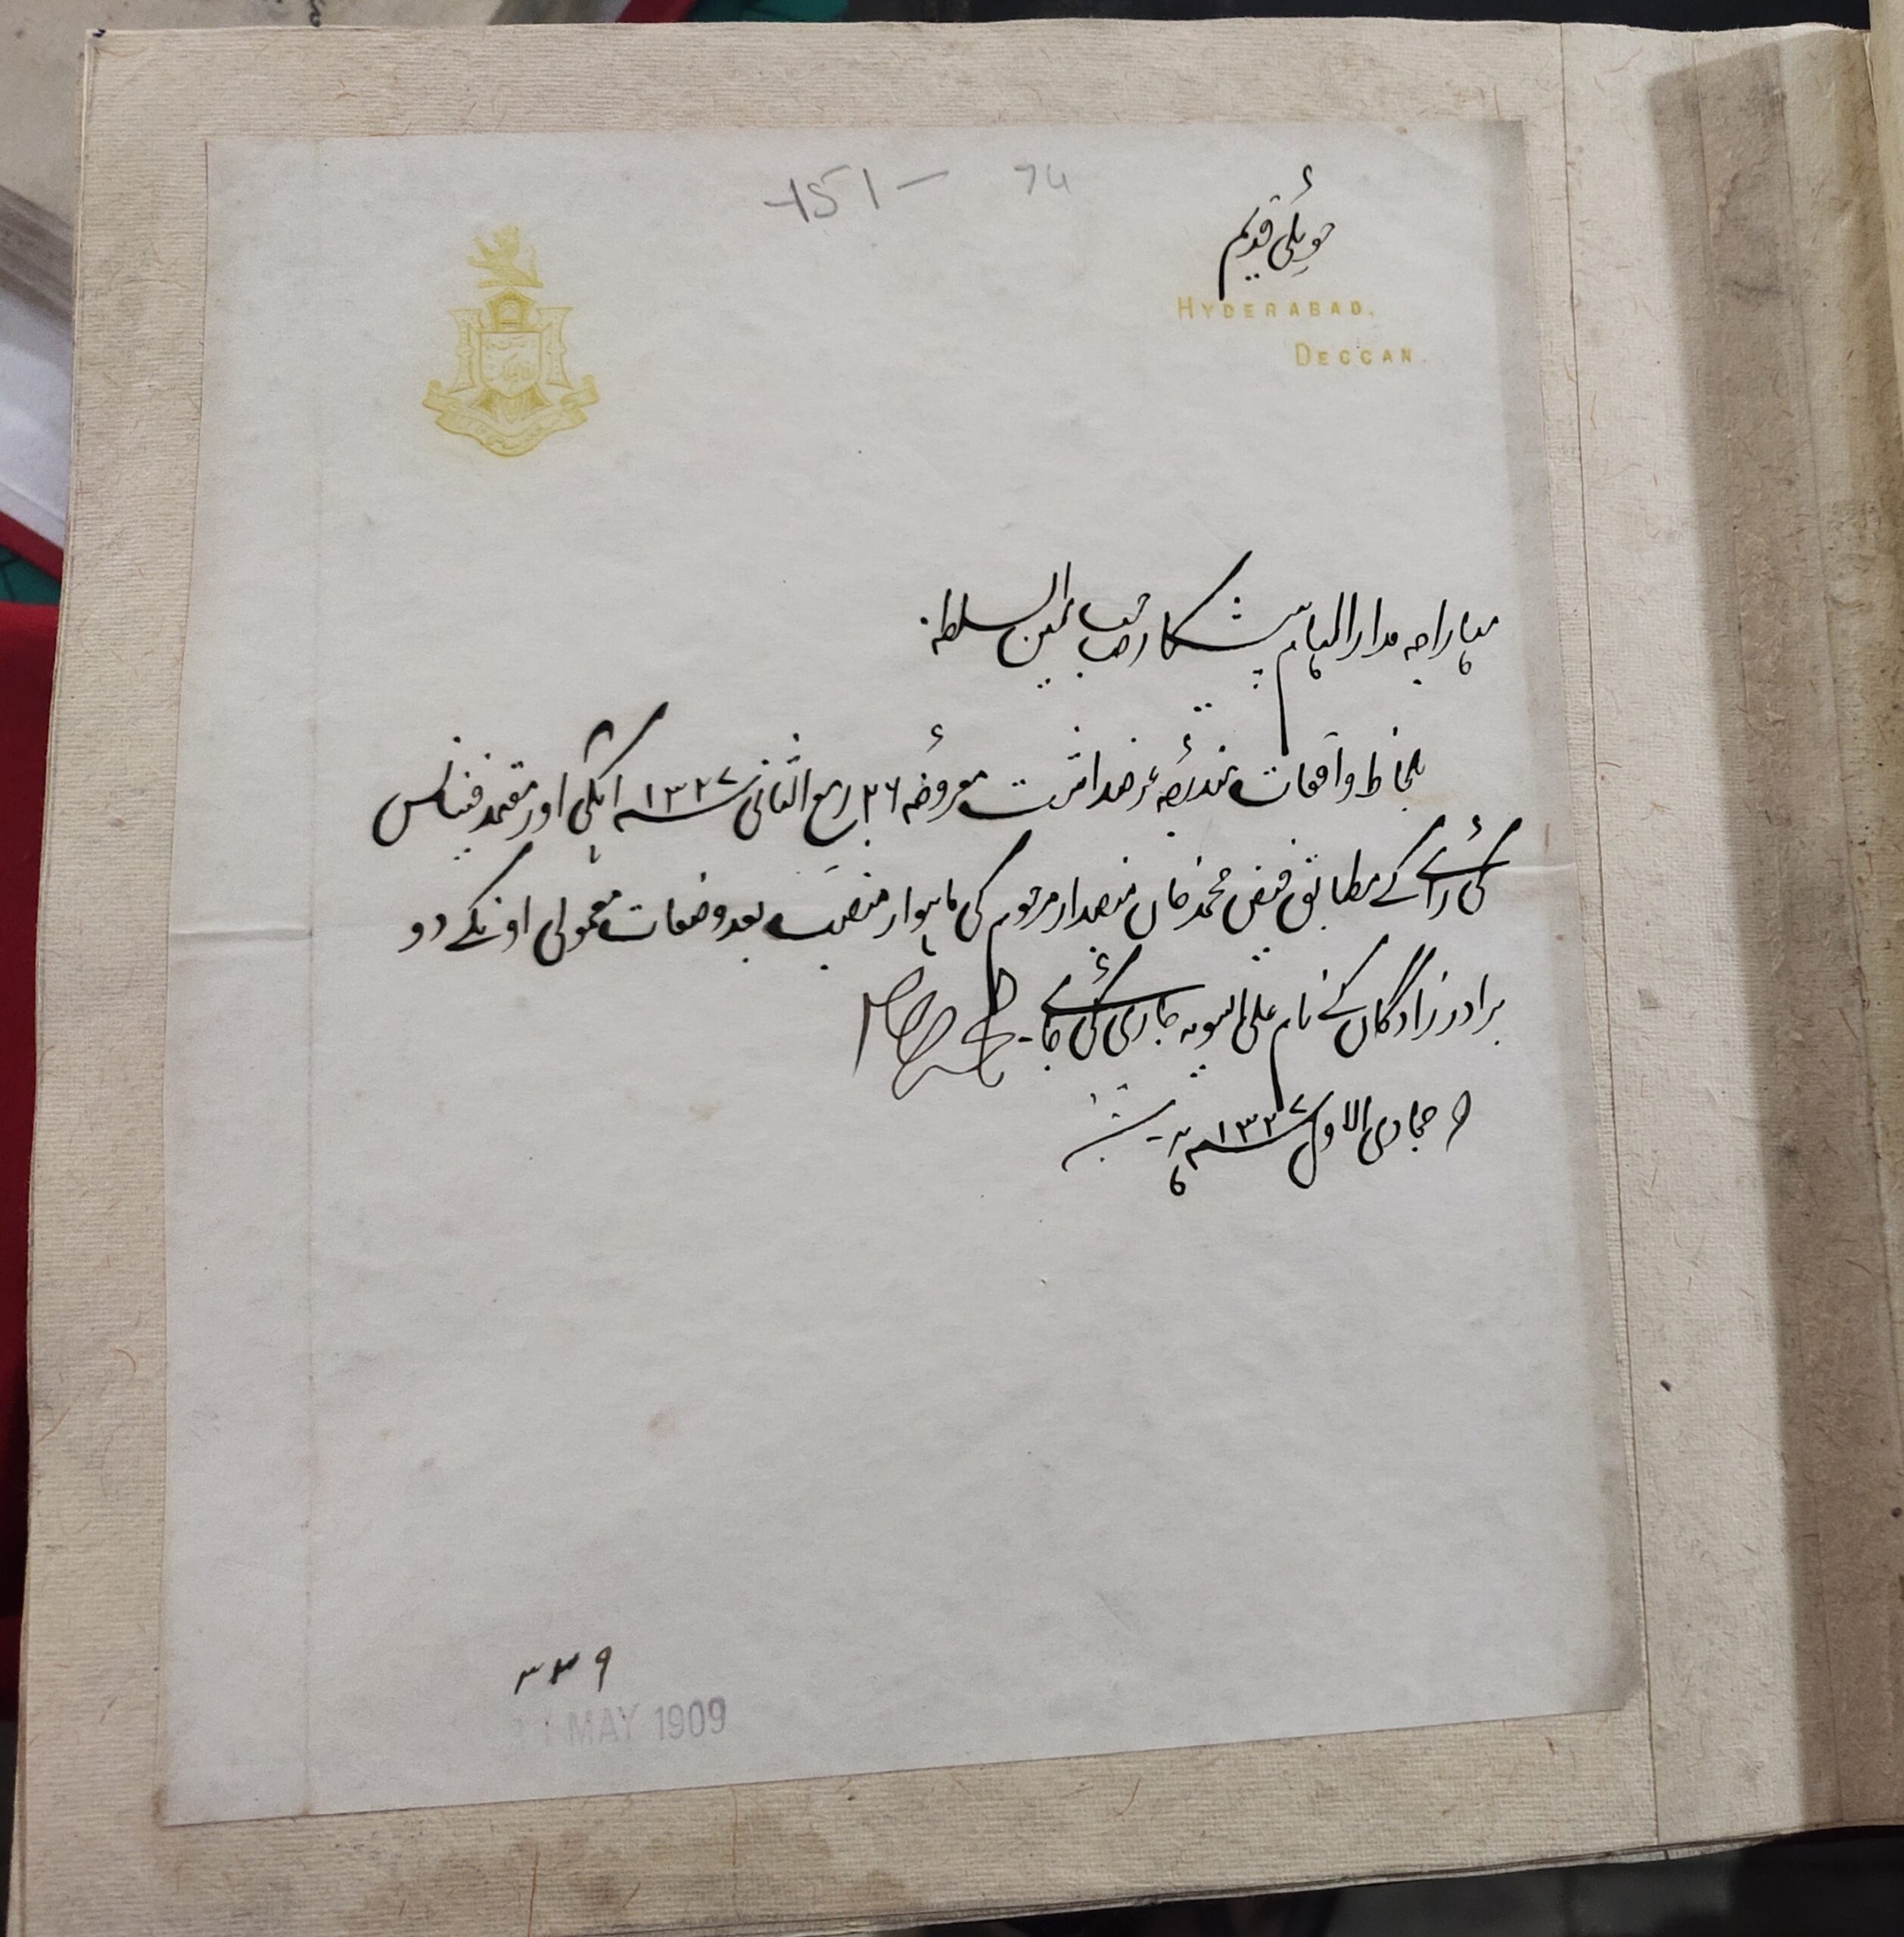 451— 74
حویلئ قدیم
HYDERABAD,
DECCAN.
مہاراجہ مدارالمہام پیشکار صاحب یمین السلطنۃ
بلحاظ واقعات مندرجۂ عرضداشت معروضۂ ۲۶ ربیع الثانی سنہ ۱۳۲۷ آپکی اور معتمد فینانس
کی رائے کے مطابق فیض محمد خاں منصبدار مرحوم کی ماہوار منصب بعد وضعات معمولی اونکے دو
برادر زادگاں کے نام علی السویہ جاری کی جائے۔
جمادی الاول سنہ ۱۳۲۷ ھ
۳۳۹
MAY 1909